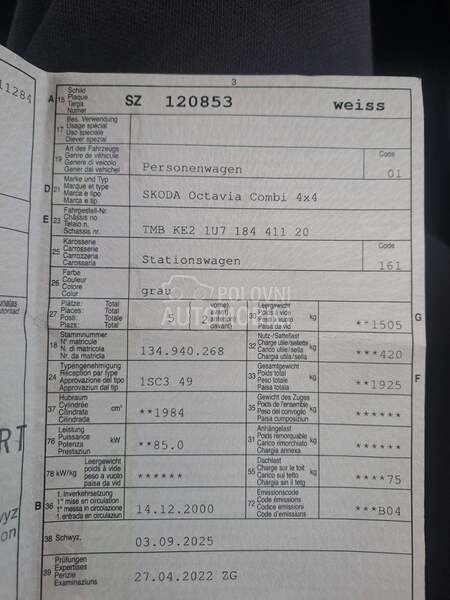 3
11284
A 15 Schild Plaque Targa Numer SZ 120853 weiss
17 Bes. Verwendung Usage spécial Uso speciale Diever spezial
19 Art des Fahrzeugs Genre de véhicule Genere di veicolo Gener dal vehichel Personenwagen Code 01
D 21 Marke und Typ Marque et type Marca e tipo Marca e tip SKODA Octavia Combi 4x4
E 23 Fahrgestell-Nr. Châssis no Telaio n. Schassis nr. TMB KE2 1U7 184 411 20
25 Karosserie Carrosserie Carrozzeria Carossaria Stationswagen Code 161
26 Farbe Couleur Colore Colur grau
27 Plätze: Total Places: Total Posti: Total Plazs: Total 5 vorne) avant) davanti) davant) 2 30 Leergewicht Poids à vide Peso a vuoto Paisa da vid kg **1505 G
18 Stammnummer N° matricule N. di matricola Nr. da matricla 134.940.268 32 Nutz-/Sattellast Charge utile/sellette Carico utile/sella Chargia utila/sella kg ***420
24 Typengenehmigung Réception par type Approvazione del tipo Approvaziun dal tip 1SC3 49 33 Gesamtgewicht Poids total Peso totale Paisa totala kg **1925 F
37 Hubraum Cylindrée Cilindrata Cilindrada cm³ **1984 35 Gewicht des Zuges Poids de l'ensemble Peso del convoglio Paisa cumposiziun kg ******
76 Leistung Puissance Potenza Prestaziun kW **85.0 31 Anhängelast Poids remorquable Carico rimorchiato Chargia annexa kg ******
78 kW/kg Leergewicht poids à vide peso a vuoto paisa da vid ****** 55 Dachlast Charge sur le toit Carico sul tetto Chargia sin il tetg kg ****75
B 36 1. Inverkehrsetzung 1re mise en circulation 1a messa in circolazione 1. entrada en circulaziun 14.12.2000 72 Emissionscode Code d'émissions Codice emissioni Code d'emissiuns ***B04
38 Schwyz, 03.09.2025
39 Prüfungen Expertises Perizie Examinaziuns 27.04.2022 ZG
POLOVNI
AUTOMOBILI